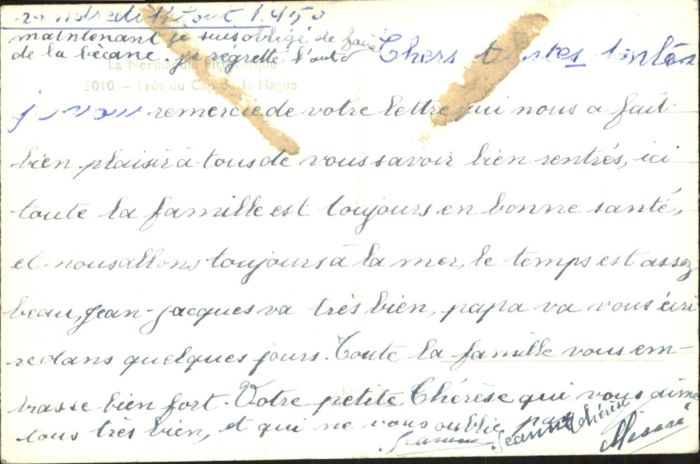 vendredi 11 Aout 1950
maintenant je suis obligé de faire
de la bécane. je regrette l'auto
Chers tantes tontons
La Normandie
3010 - Près du Cap de la Hague
je vous remercie de votre lettre qui nous a fait
bien plaisir à tous de vous savoir bien rentrés, ici
toute la famille est toujours en bonne santé,
et nous allons toujours à la mer, le temps est assez
beau, Jean-Jacques va très bien, papa va vous écri
re dans quelques jours. Toute la famille vous em-
brasse bien fort. Votre petite Thérèse qui vous aime
tous très bien, et qui ne vous oublie pas
Jeanne Thérèse